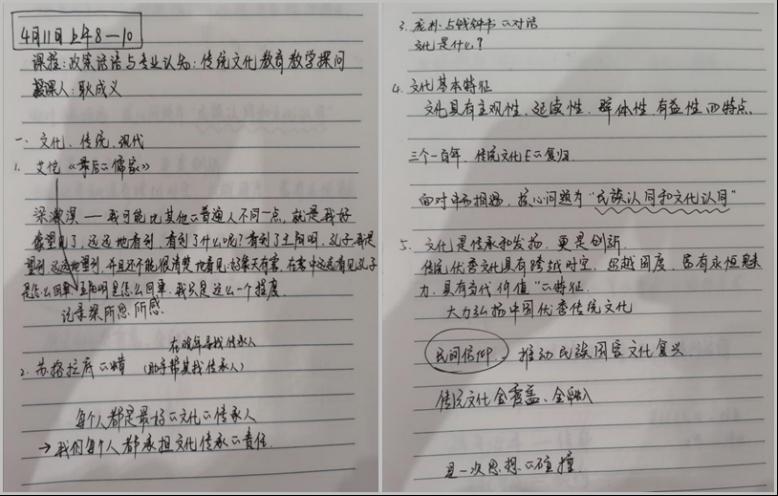 4月11日上午8—10
课程：政策话语与专业认知：传统文化教育教学探问
授课人：耿成义
一、文化、传统、现代
1. 艾恺《最后的儒家》
梁漱溟——我可能比其他的普通人不同一点，就是我好
像望见了，远远地看到，看到了什么呢？看到了王阳明，孔子我是
望到，远远地望到，并且还不能很清楚地看见，好象天有雾，在雾中远远看见孔子
是怎么回事，王阳明是怎么回事，我只是这么一个程度
记录梁所思、所感
在晚年寻找传承人
2. 苏格拉底的 （助手帮其找传承人）
每个人都是最好的文化的传承人
→我们每个人都承担文化传承的责任
3. 庞朴与钱钟书的对话
文化是什么？
4. 文化基本特征
文化具有主观性、延续性、群体性、有益性四特点
三个一百年，传统文化 复归
面对 核心问题为“民族认同和文化认同”
5. 文化是传承和发扬，更是创新
传统优秀文化具有跨越时空、超越国度、富有永恒魅
力、具有当代价值”的特征
大力弘扬中国优秀传统文化
民间信仰 推动民族国家文化复兴
传统文化全覆盖、全融入
是一次思想的碰撞